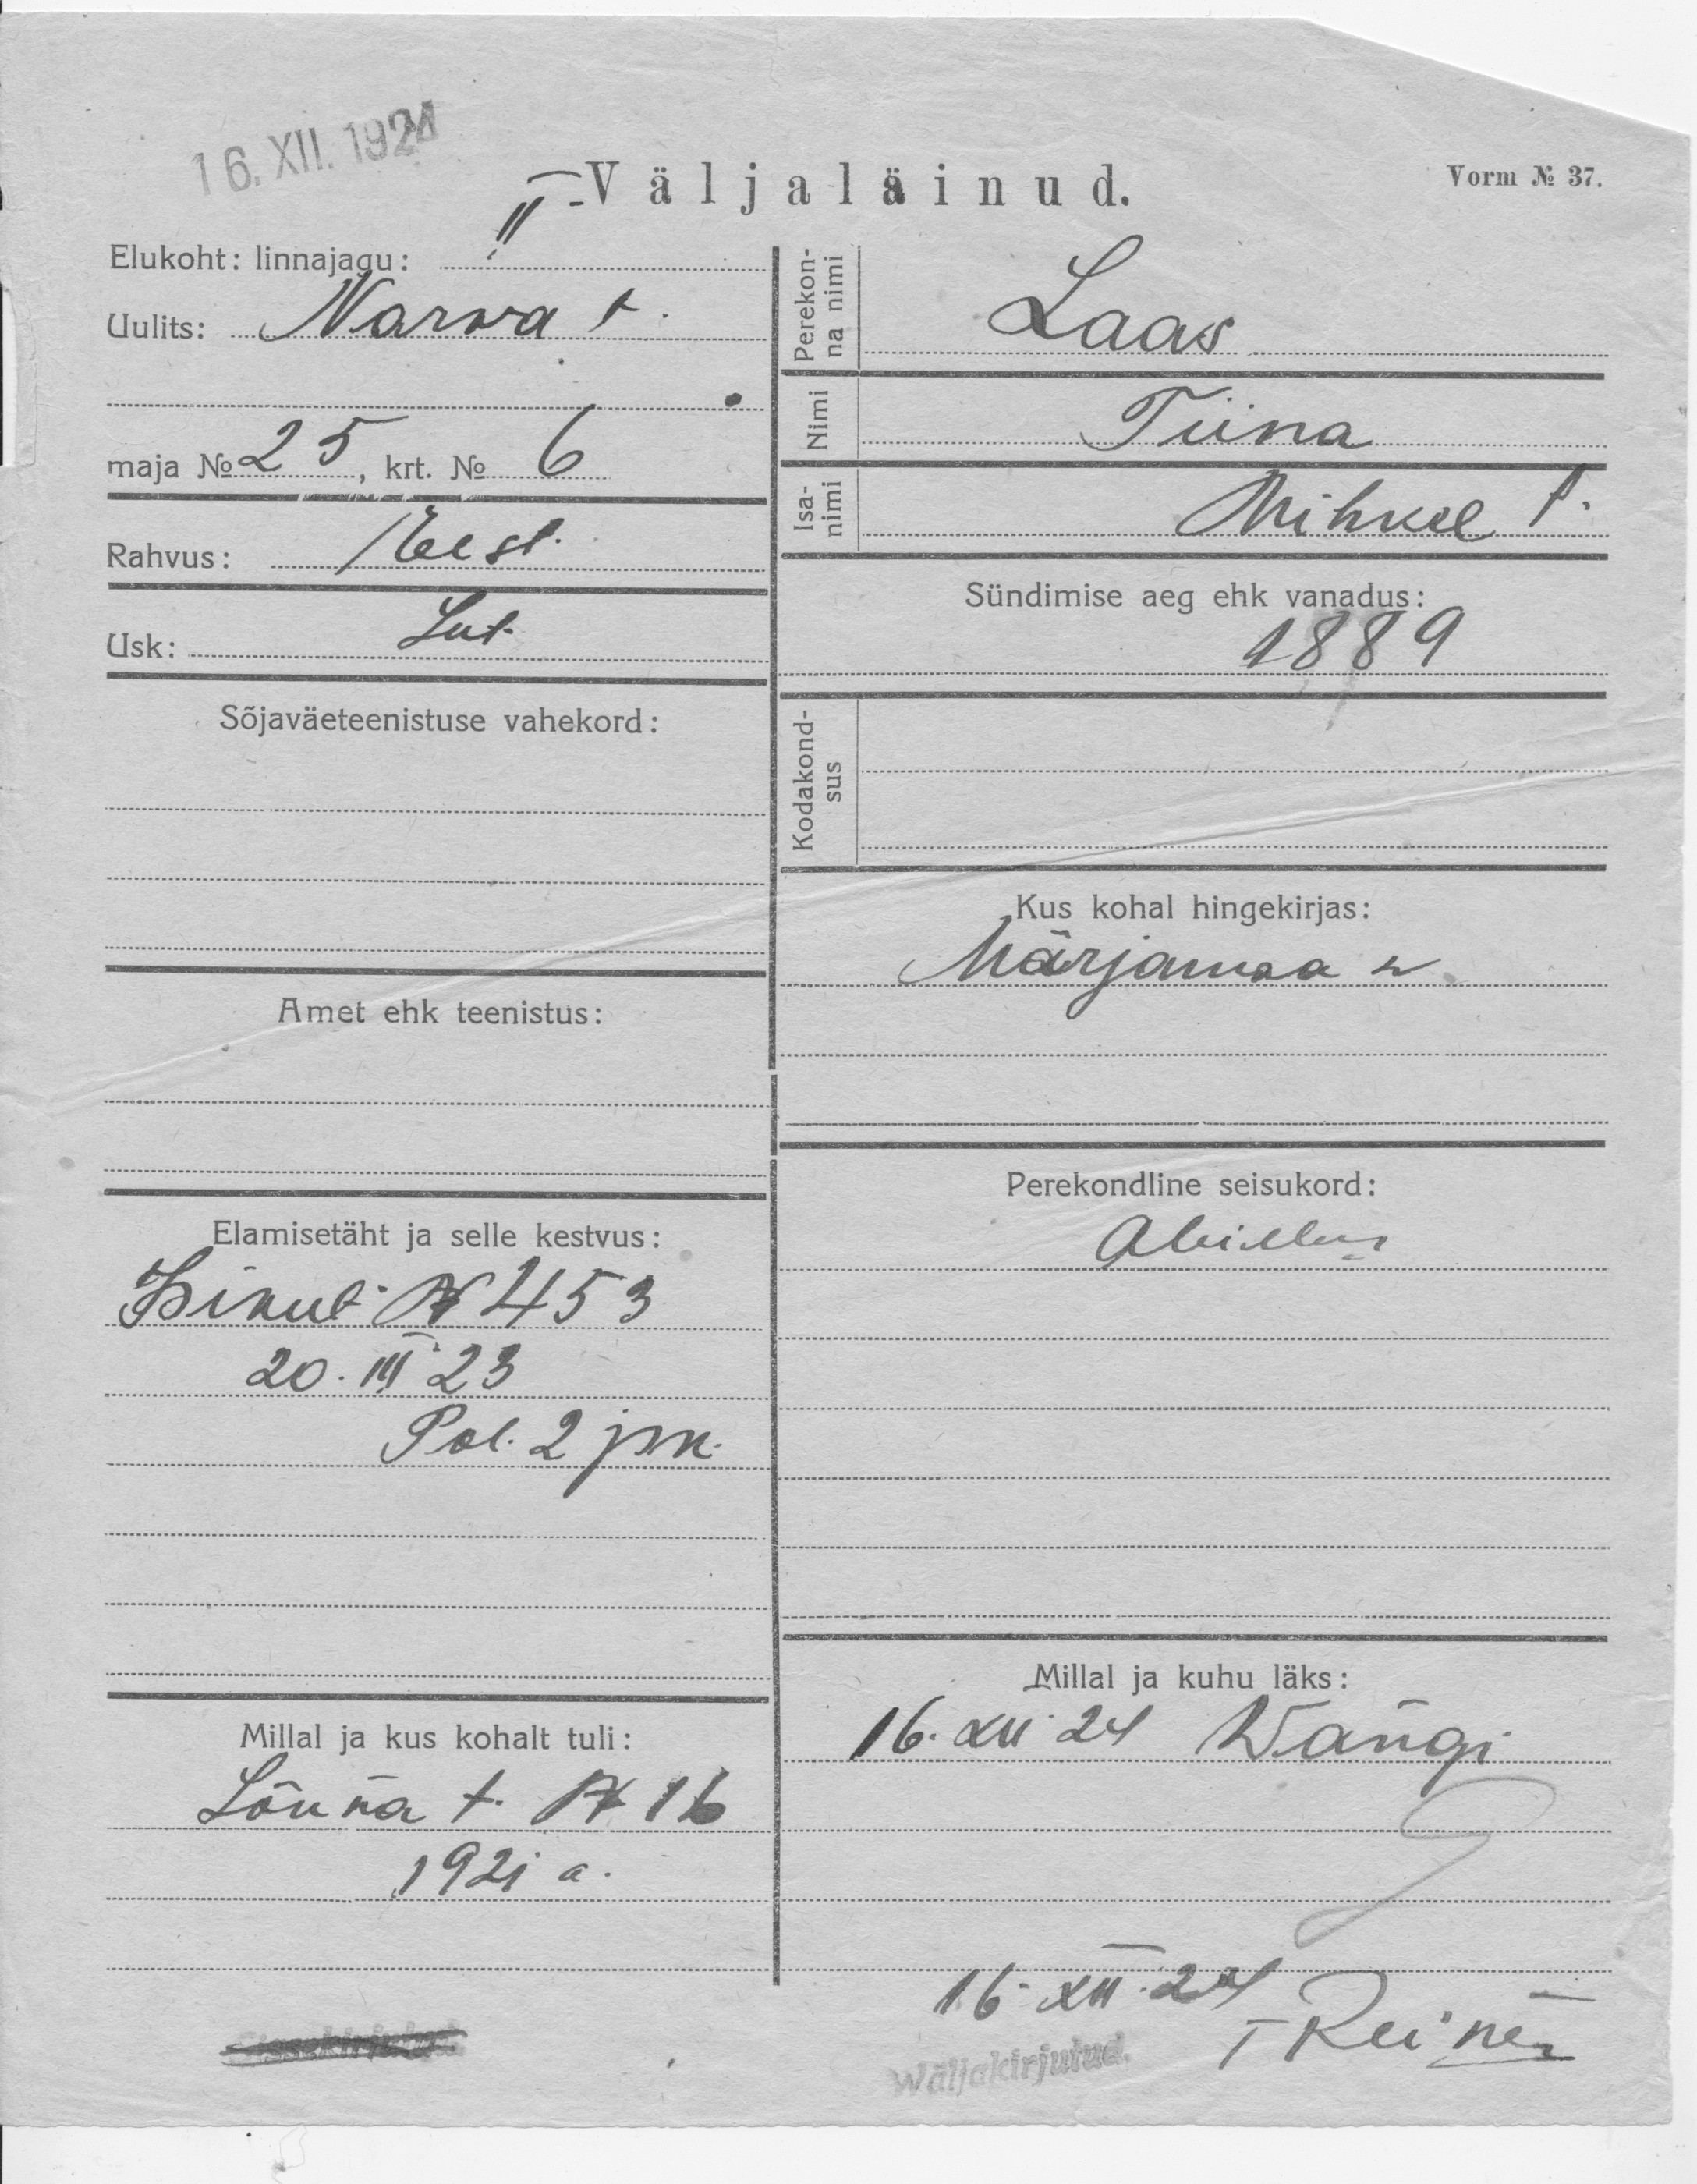 16. XII. 1924
Väljaläinud.
Vorm № 37.
Elukoht: linnajagu: II
Uulits: Narva t.
maja № 25, krt. № 6
Rahvus: Eest.
Usk: Lut.
Sõjaväeteenistuse vahekord:
Amet ehk teenistus:
Elamisetäht ja selle kestvus:
Isikut. № 453
20. III 23
Pol. 2 jsk.
Millal ja kus kohalt tuli:
Lõuna t. № 16
1921 a.
Perekon-
na nimi
Laas
Nimi
Tiina
Isa-
nimi
Mihkel t.
Sündimise aeg ehk vanadus:
1889
Kodakond-
sus
Kus kohal hingekirjas:
Märjamaa v.
Perekondline seisukord:
Abielus
Millal ja kuhu läks:
16. XII 24 Wangi
16. XII. 24
Wäljakirjutud.